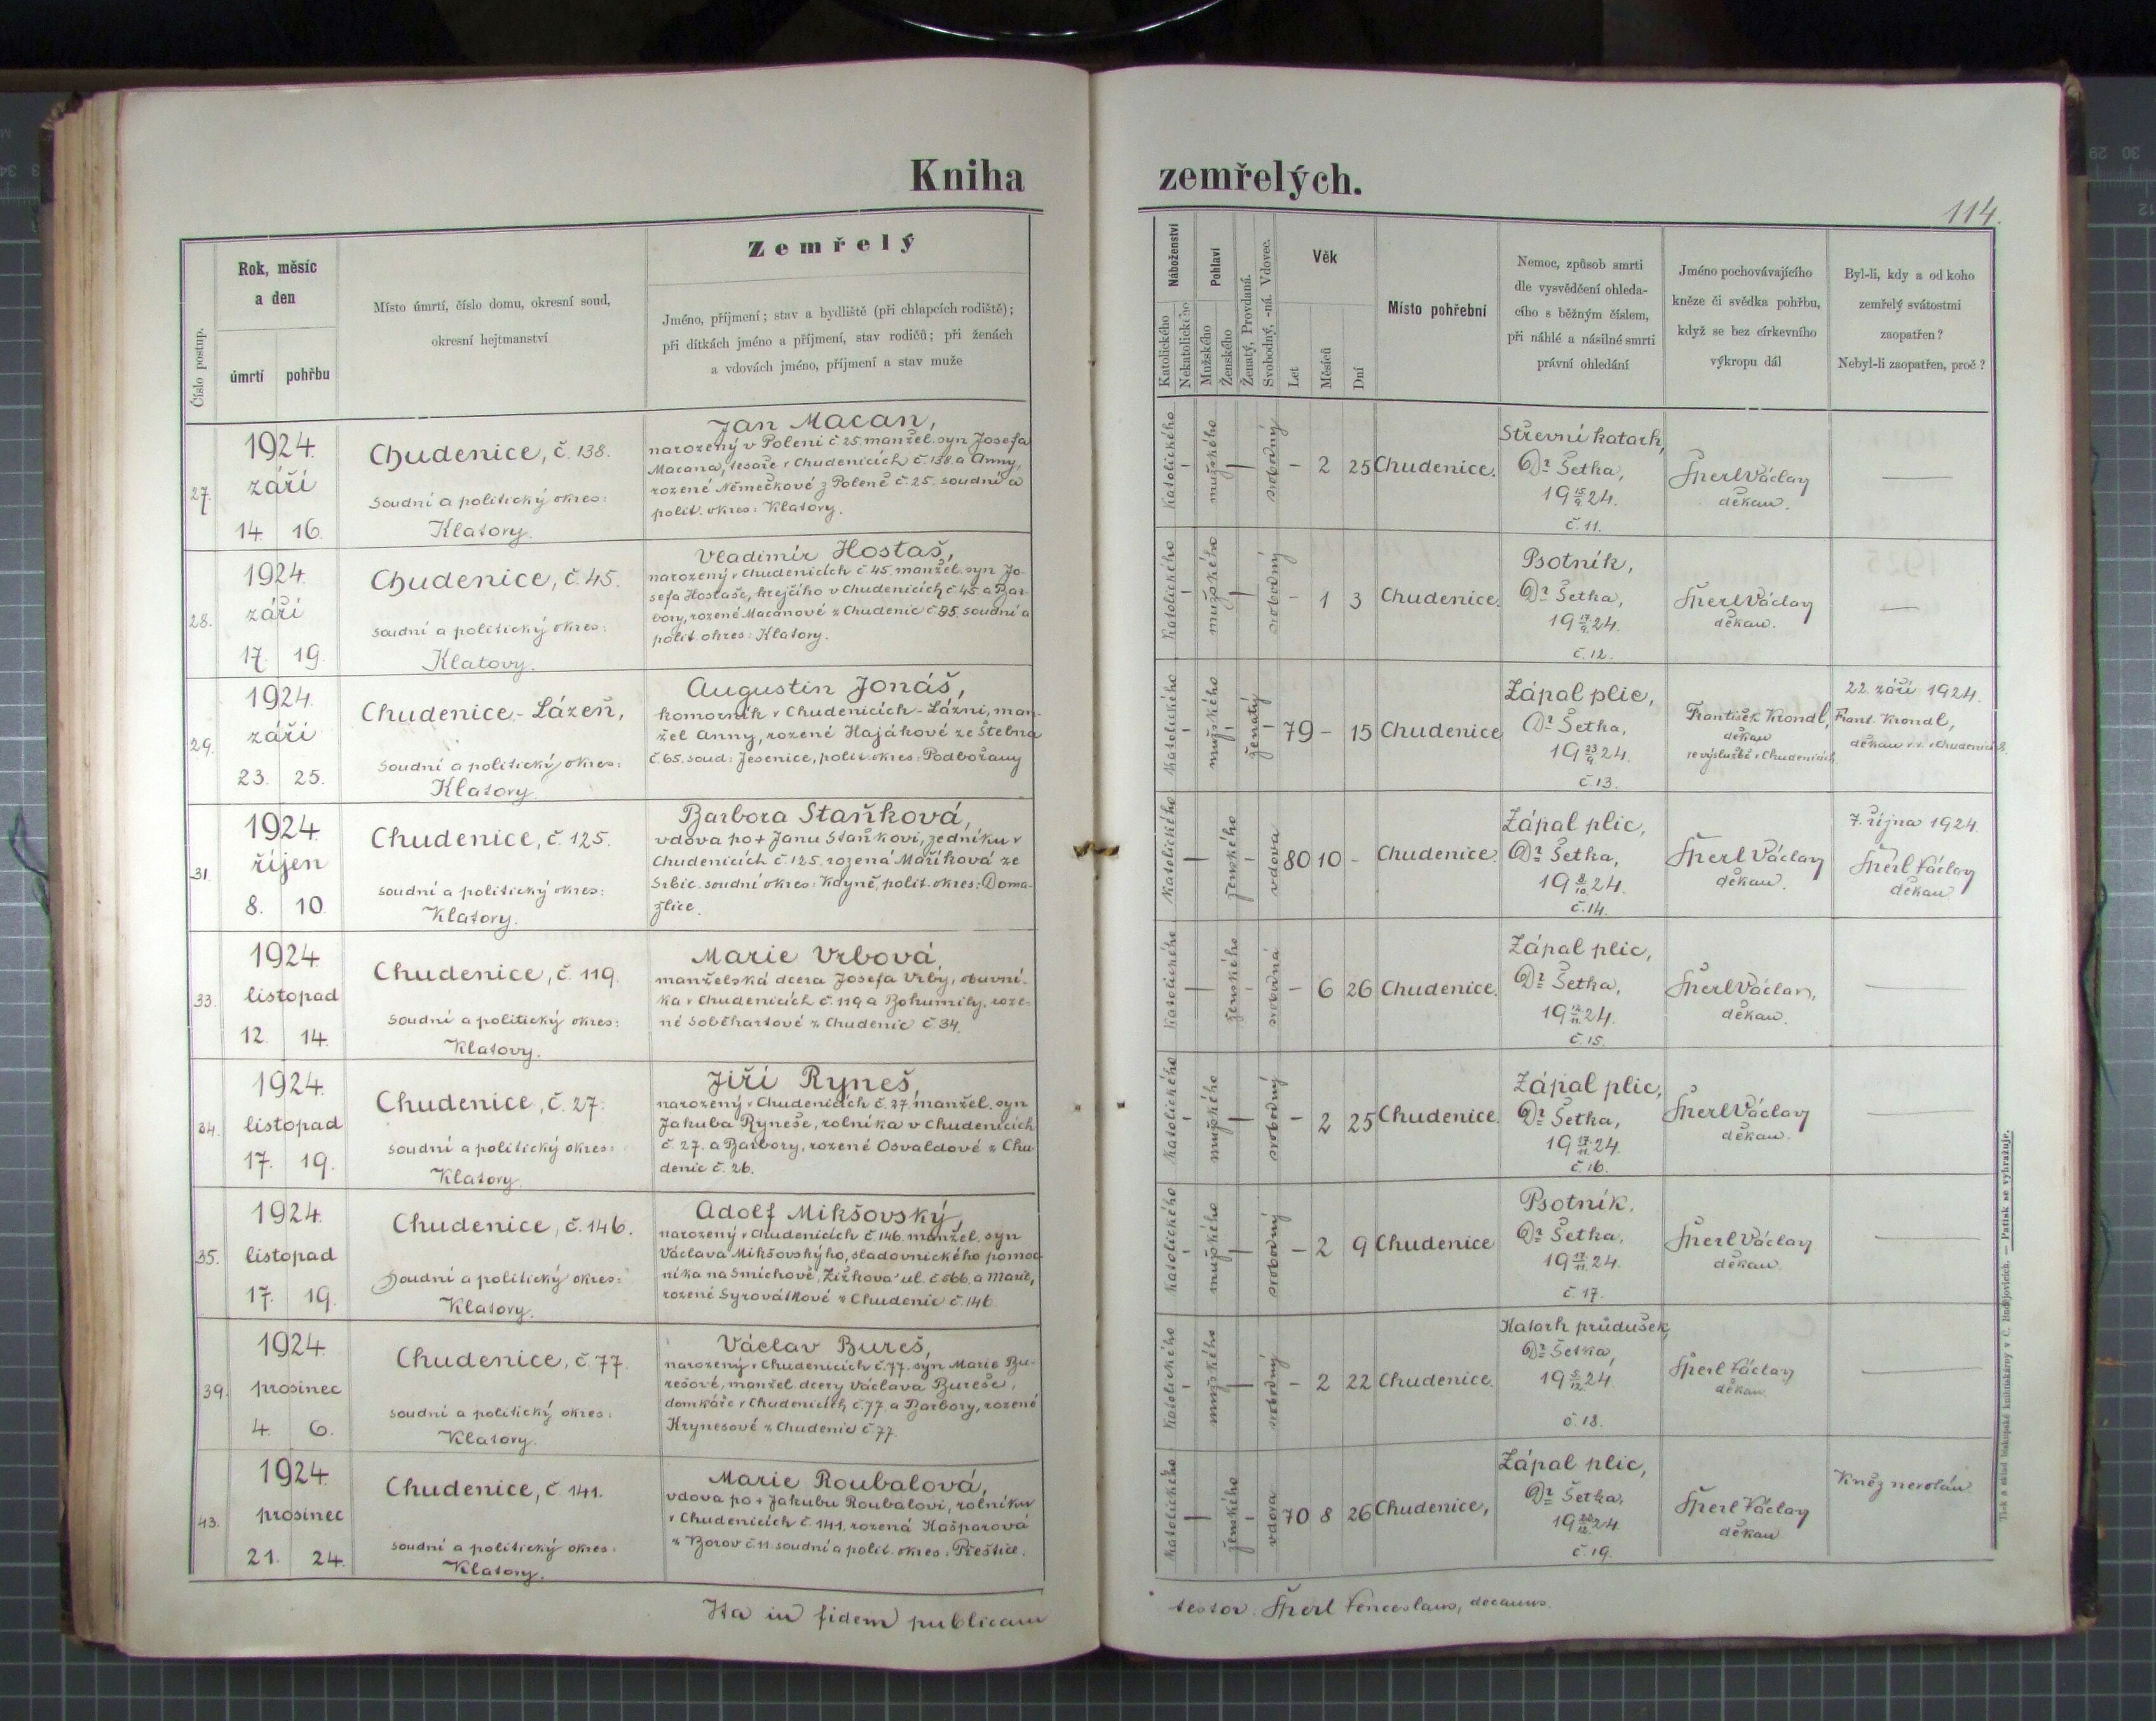 Kniha zemřelých.
114.
Číslo postup.
Rok, měsíc
a den
úmrtí pohřbu
Místo úmrtí, číslo domu, okresní soud,
okresní hejtmanství
Zemřelý
Jméno, příjmení; stav a bydliště (při chlapcích rodiště);
při dítkách jméno a příjmení, stav rodičů; při ženách
a vdovách jméno, příjmení a stav muže
Náboženství
Katolického
Nekatolického
Pohlaví
Mužského
Ženského
Ženatý, Provdaná.
Svobodný, -ná. Vdovec.
Věk
Let
Měsíců
Dní
Místo pohřební
Nemoc, způsob smrti
dle vysvědčení ohleda-
cího s běžným číslem,
při náhlé a násilné smrti
právní ohledání
Jméno pochovávajícího
kněze či svědka pohřbu,
když se bez církevního
výkropu dál
Byl-li, kdy a od koho
zemřelý svátostmi
zaopatřen?
Nebyl-li zaopatřen, proč?
27.
1924.
září
14. 16.
Chudenice, č. 138.
Soudní a politický okres:
Klatovy.
Jan Macan,
narozený v Poleni č 25. manžel. syn Josefa
Macana, tesaře v Chudenicích č. 138. a Anny,
rozené Němečkové z Poleně č. 25. soudní a
polit. okres: Klatovy.
katolického - mužského - svobodný - 2 25 Chudenice.
Střevní katarh,
Dr Šetka,
19 15/9 24.
č. 11.
Šperl Václav
děkan.
28.
1924.
září
17. 19.
Chudenice, č. 45.
soudní a politický okres:
Klatovy.
Vladimír Hostaš,
narozený v Chudenicích č 45. manžel. syn Jo-
sefa Hostaše, krejčího v Chudenicích č 45 a Bar-
bory, rozené Macanové z Chudenic č. 85. soudní a
polit. okres: Klatovy.
katolického - mužského - svobodný - 1 3 Chudenice.
Psotník,
Dr Šetka,
19 17/9 24.
č. 12.
Šperl Václav
děkan.
29.
1924.
září
23. 25.
Chudenice - Lázeň,
soudní a politický okres:
Klatovy.
Augustin Jonáš,
komorník v Chudenicích - Lázni, man-
žel Anny, rozené Hajákové ze Štelna
č. 65. soud: Jesenice, polit. okres: Podbořany
katolického - mužského - ženatý - 79 - 15 Chudenice
Zápal plic,
Dr Šetka,
19 23/9 24.
č 13.
František Krondl,
děkan
ve výslužbě v Chudenicích.
22. září 1924.
Frant. Krondl,
děkan v. v. v Chudenicích.
31.
1924.
říjen
8. 10.
Chudenice, č. 125.
soudní a politický okres:
Klatovy.
Barbora Staňková,
vdova po + Janu Staňkovi, zedníku v
Chudenicích č. 125. rozená Maříková ze
Srbic. soudní okres: Kdyně, polit. okres: Doma-
žlice.
katolického - ženského - vdova 80 10 - Chudenice.
Zápal plic,
Dr Šetka,
19 8/10 24.
č. 14.
Šperl Václav
děkan.
7. října 1924.
Šperl Václav
děkan
33.
1924.
listopad
12. 14.
Chudenice, č. 119.
Soudní a politický okres:
Klatovy.
Marie Vrbová,
manželská dcera Josefa Vrby, obuvní-
ka v Chudenicích č. 119 a Bohumily, roze-
né Soběhartové z Chudenic č. 34.
katolického - ženského - svobodná - 6 26 Chudenice.
Zápal plic,
Dr Šetka,
19 12/11 24.
č. 15.
Šperl Václav,
děkan.
34.
1924.
listopad
17. 19.
Chudenice, č. 27.
soudní a politický okres:
Klatovy.
Jiří Ryneš,
narozený v Chudenicích č. 27. manžel. syn
Jakuba Ryneše, rolníka v Chudenicích
č. 27. a Barbory, rozené Osvaldové z Chu
denic č. 26.
katolického - mužského - svobodný - 2 25 Chudenice.
Zápal plic,
Dr Šetka,
19 17/11 24.
č 16.
Šperl Václav
děkan.
35.
1924.
listopad
17. 19.
Chudenice, č. 146.
Soudní a politický okres:
Klatovy.
Adolf Mikšovský,
narozený v Chudenicích č. 146. manžel. syn
Václava Mikšovskýho, sladovnického pomoc
níka na Smíchově, Žižkova ul. č. 566. a Marie,
rozené Syrovátkové z Chudenic č. 146.
katolického - mužského - svobodný - 2 9 Chudenice
Psotník.
Dr Šetka,
19 17/11 24.
č. 17.
Šperl Václav
děkan.
39.
1924.
prosinec
4. 6.
Chudenice, č. 77.
soudní a politický okres:
Klatovy.
Václav Bureš,
narozený v Chudenicích č. 77. syn Marie Bu-
rešové, manžel. dcery Václava Bureše,
domkáře v Chudenicích č. 77. a Barbory, rozené
Krynesové z Chudenic č. 77.
katolického - mužského - svobodný - 2 22 Chudenice.
Katarh průdušek,
Dr Šetka,
19 5/12 24.
č. 18.
Šperl Václav
děkan
43.
1924.
prosinec
21. 24.
Chudenice, č 141.
soudní a politický okres:
Klatovy.
Marie Roubalová,
vdova po + Jakubu Roubalovi, rolníku
v Chudenicích č. 141. rozená Kašparová
z Borov č. 11. soudní a polit. okres: Přeštice.
katolického - ženského - vdova 70 8 26 Chudenice,
Zápal plic,
Dr Šetka,
19 22/12 24.
č. 19.
Šperl Václav
děkan
Kněz nevolán
Ita in fidem publicam
testor: Šperl Venceslaus, decanus.
Tisk a sklad knihtiskárny v Č. Budějovicích. — Patisk se vyhražuje.